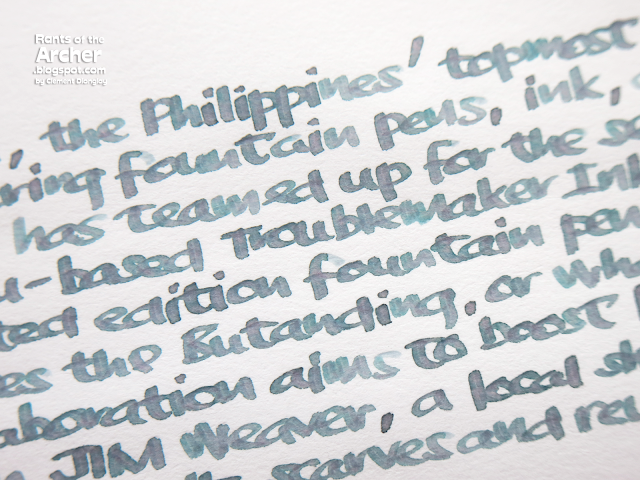 Rants of the
Archer
.blogspot.com
by Clement Dionglay
, the Philippines' topmost
ring fountain pens, ink,
has teamed up for the se
u-based Troublemaker Ink
ted edition fountain pen
es the Butanding, or wha
aboration aims to boost
JIM Weaver, a local sh
scarves and reu